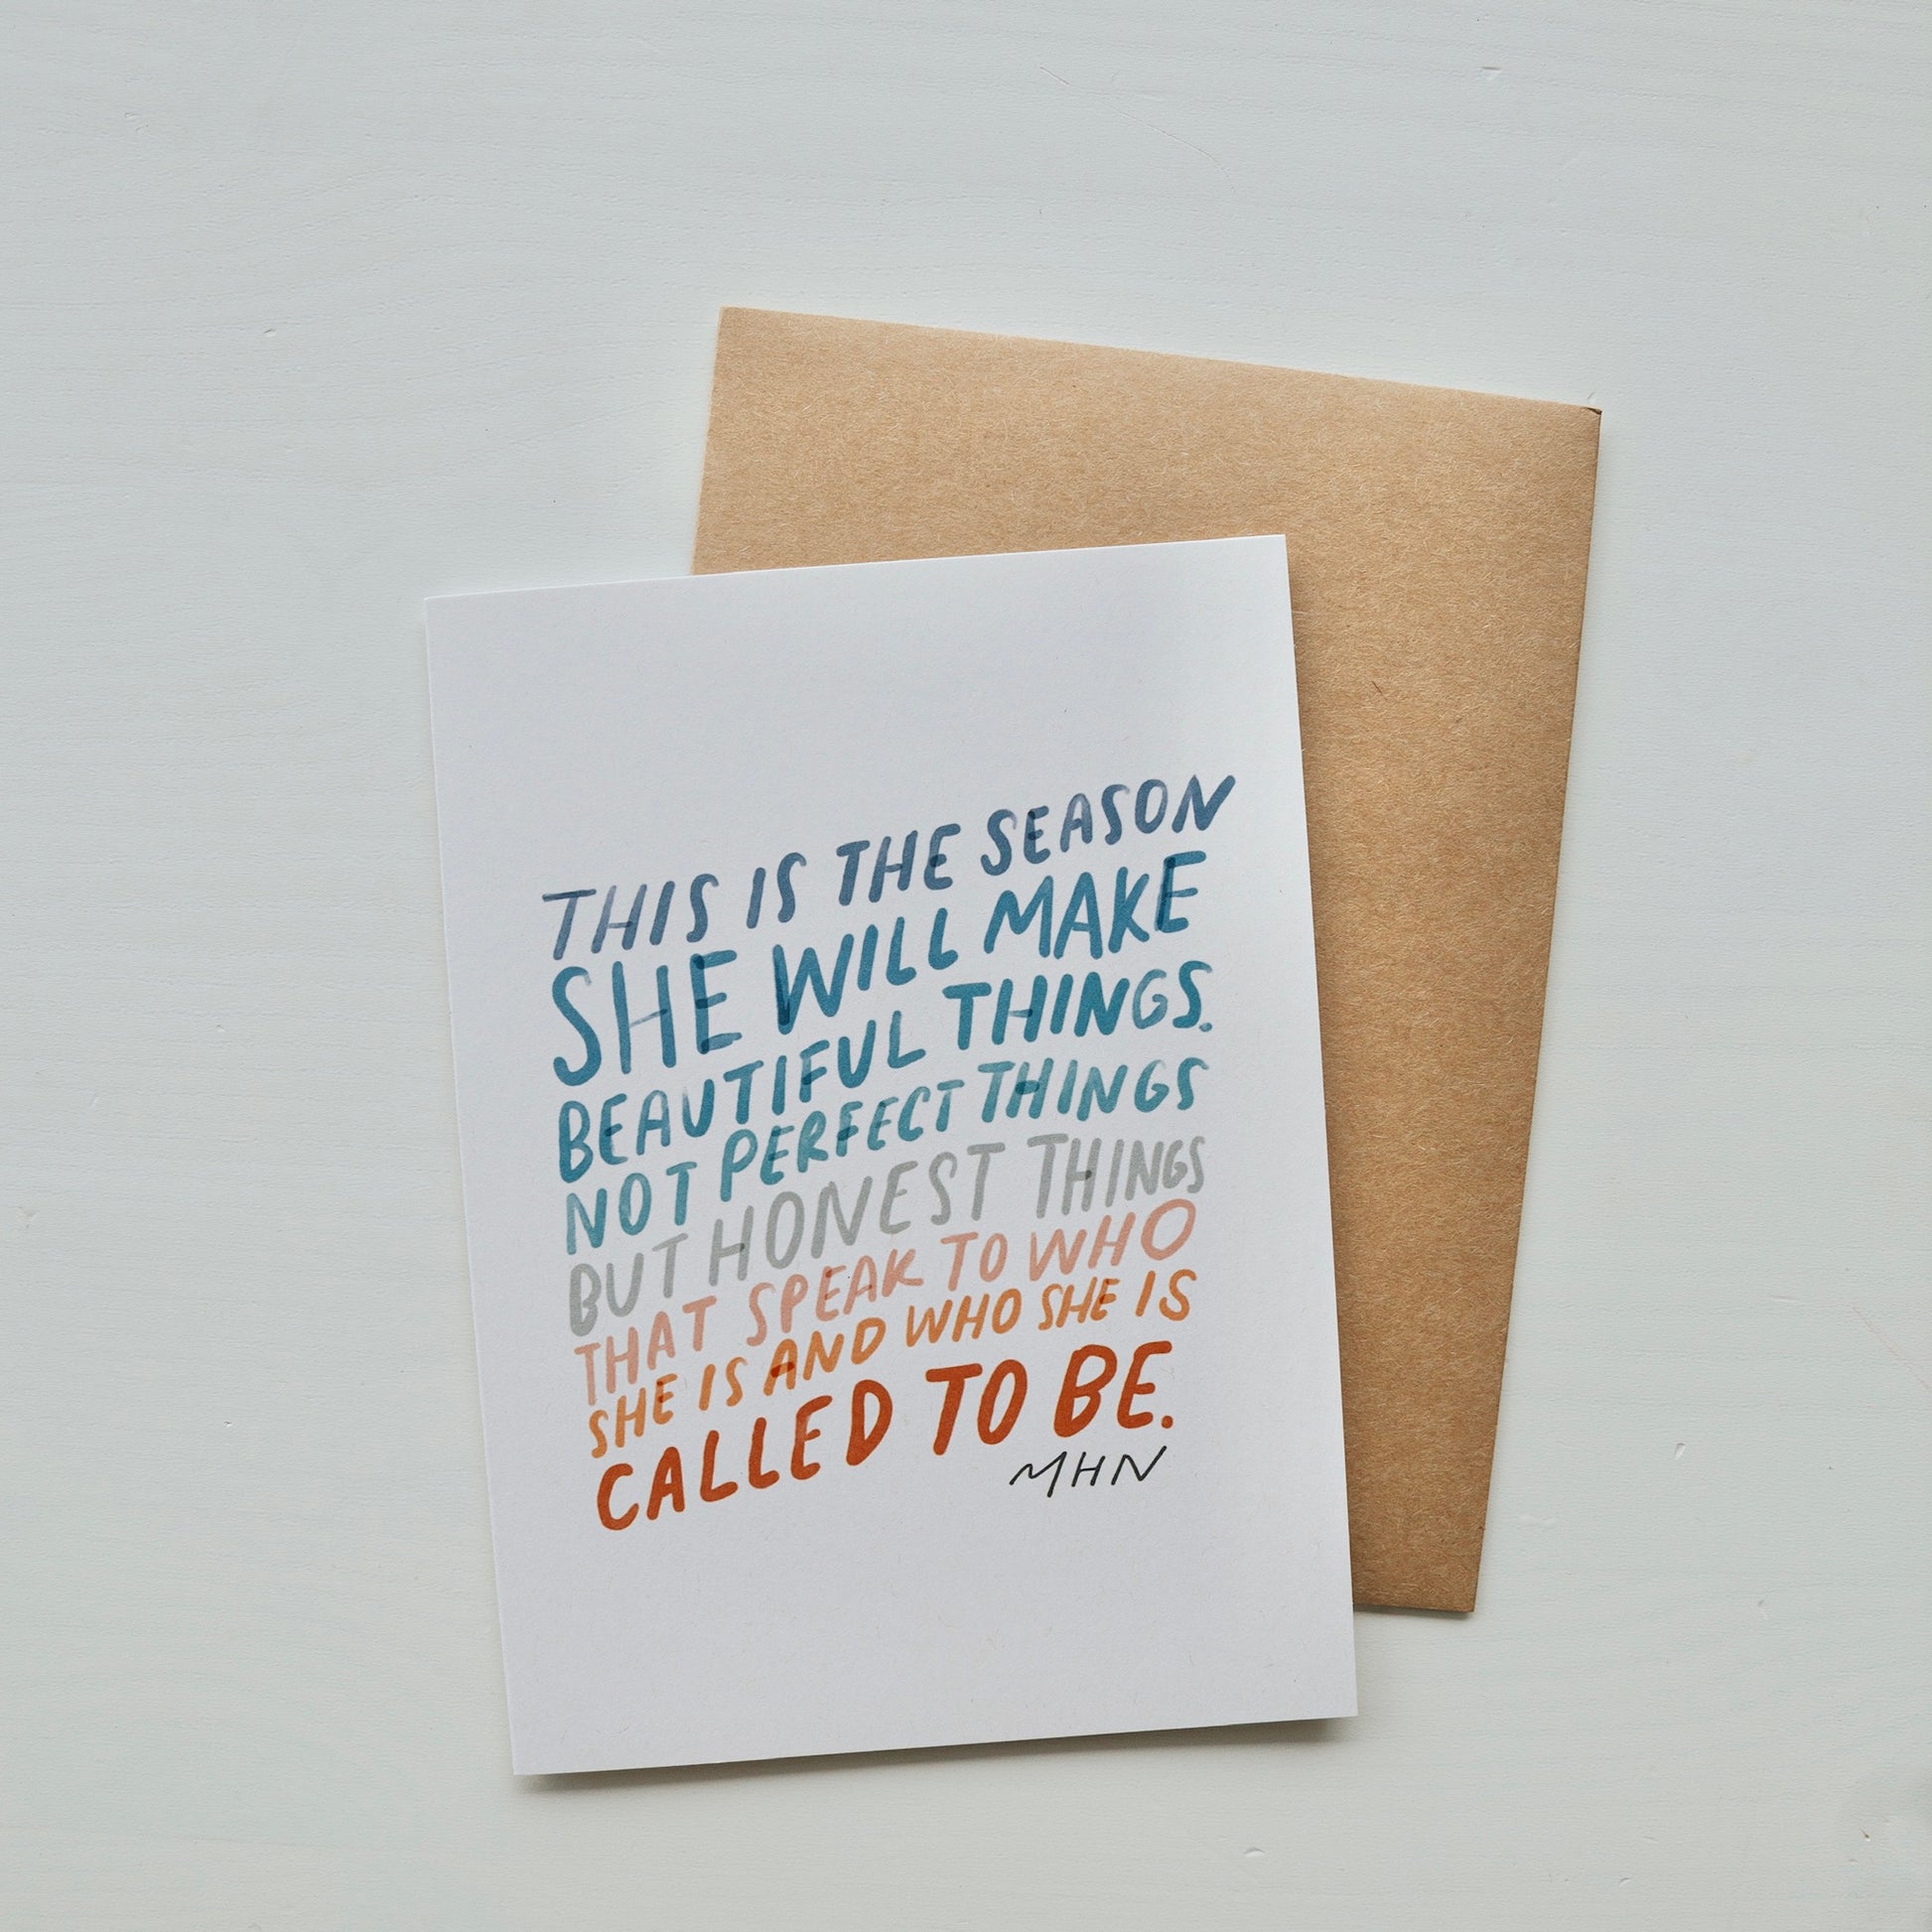 THIS IS THE SEASON
SHE WILL MAKE
BEAUTIFUL THINGS.
NOT PERFECT THINGS
BUT HONEST THINGS
THAT SPEAK TO WHO
SHE IS AND WHO SHE IS
CALLED TO BE.
MHN